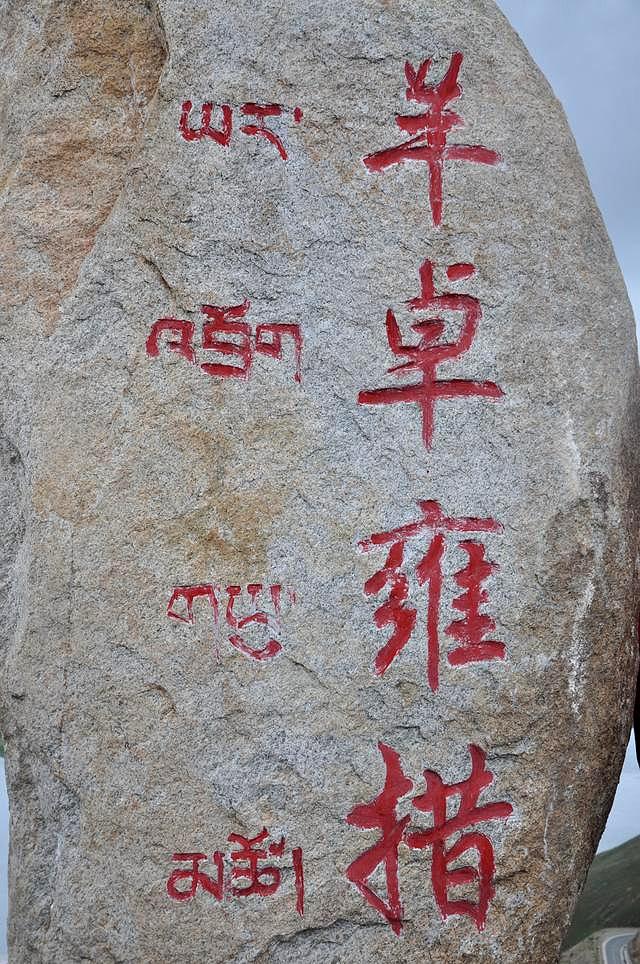 羊卓雍措
ཡར་
འབྲོག
གཡུ་
མཚོ།